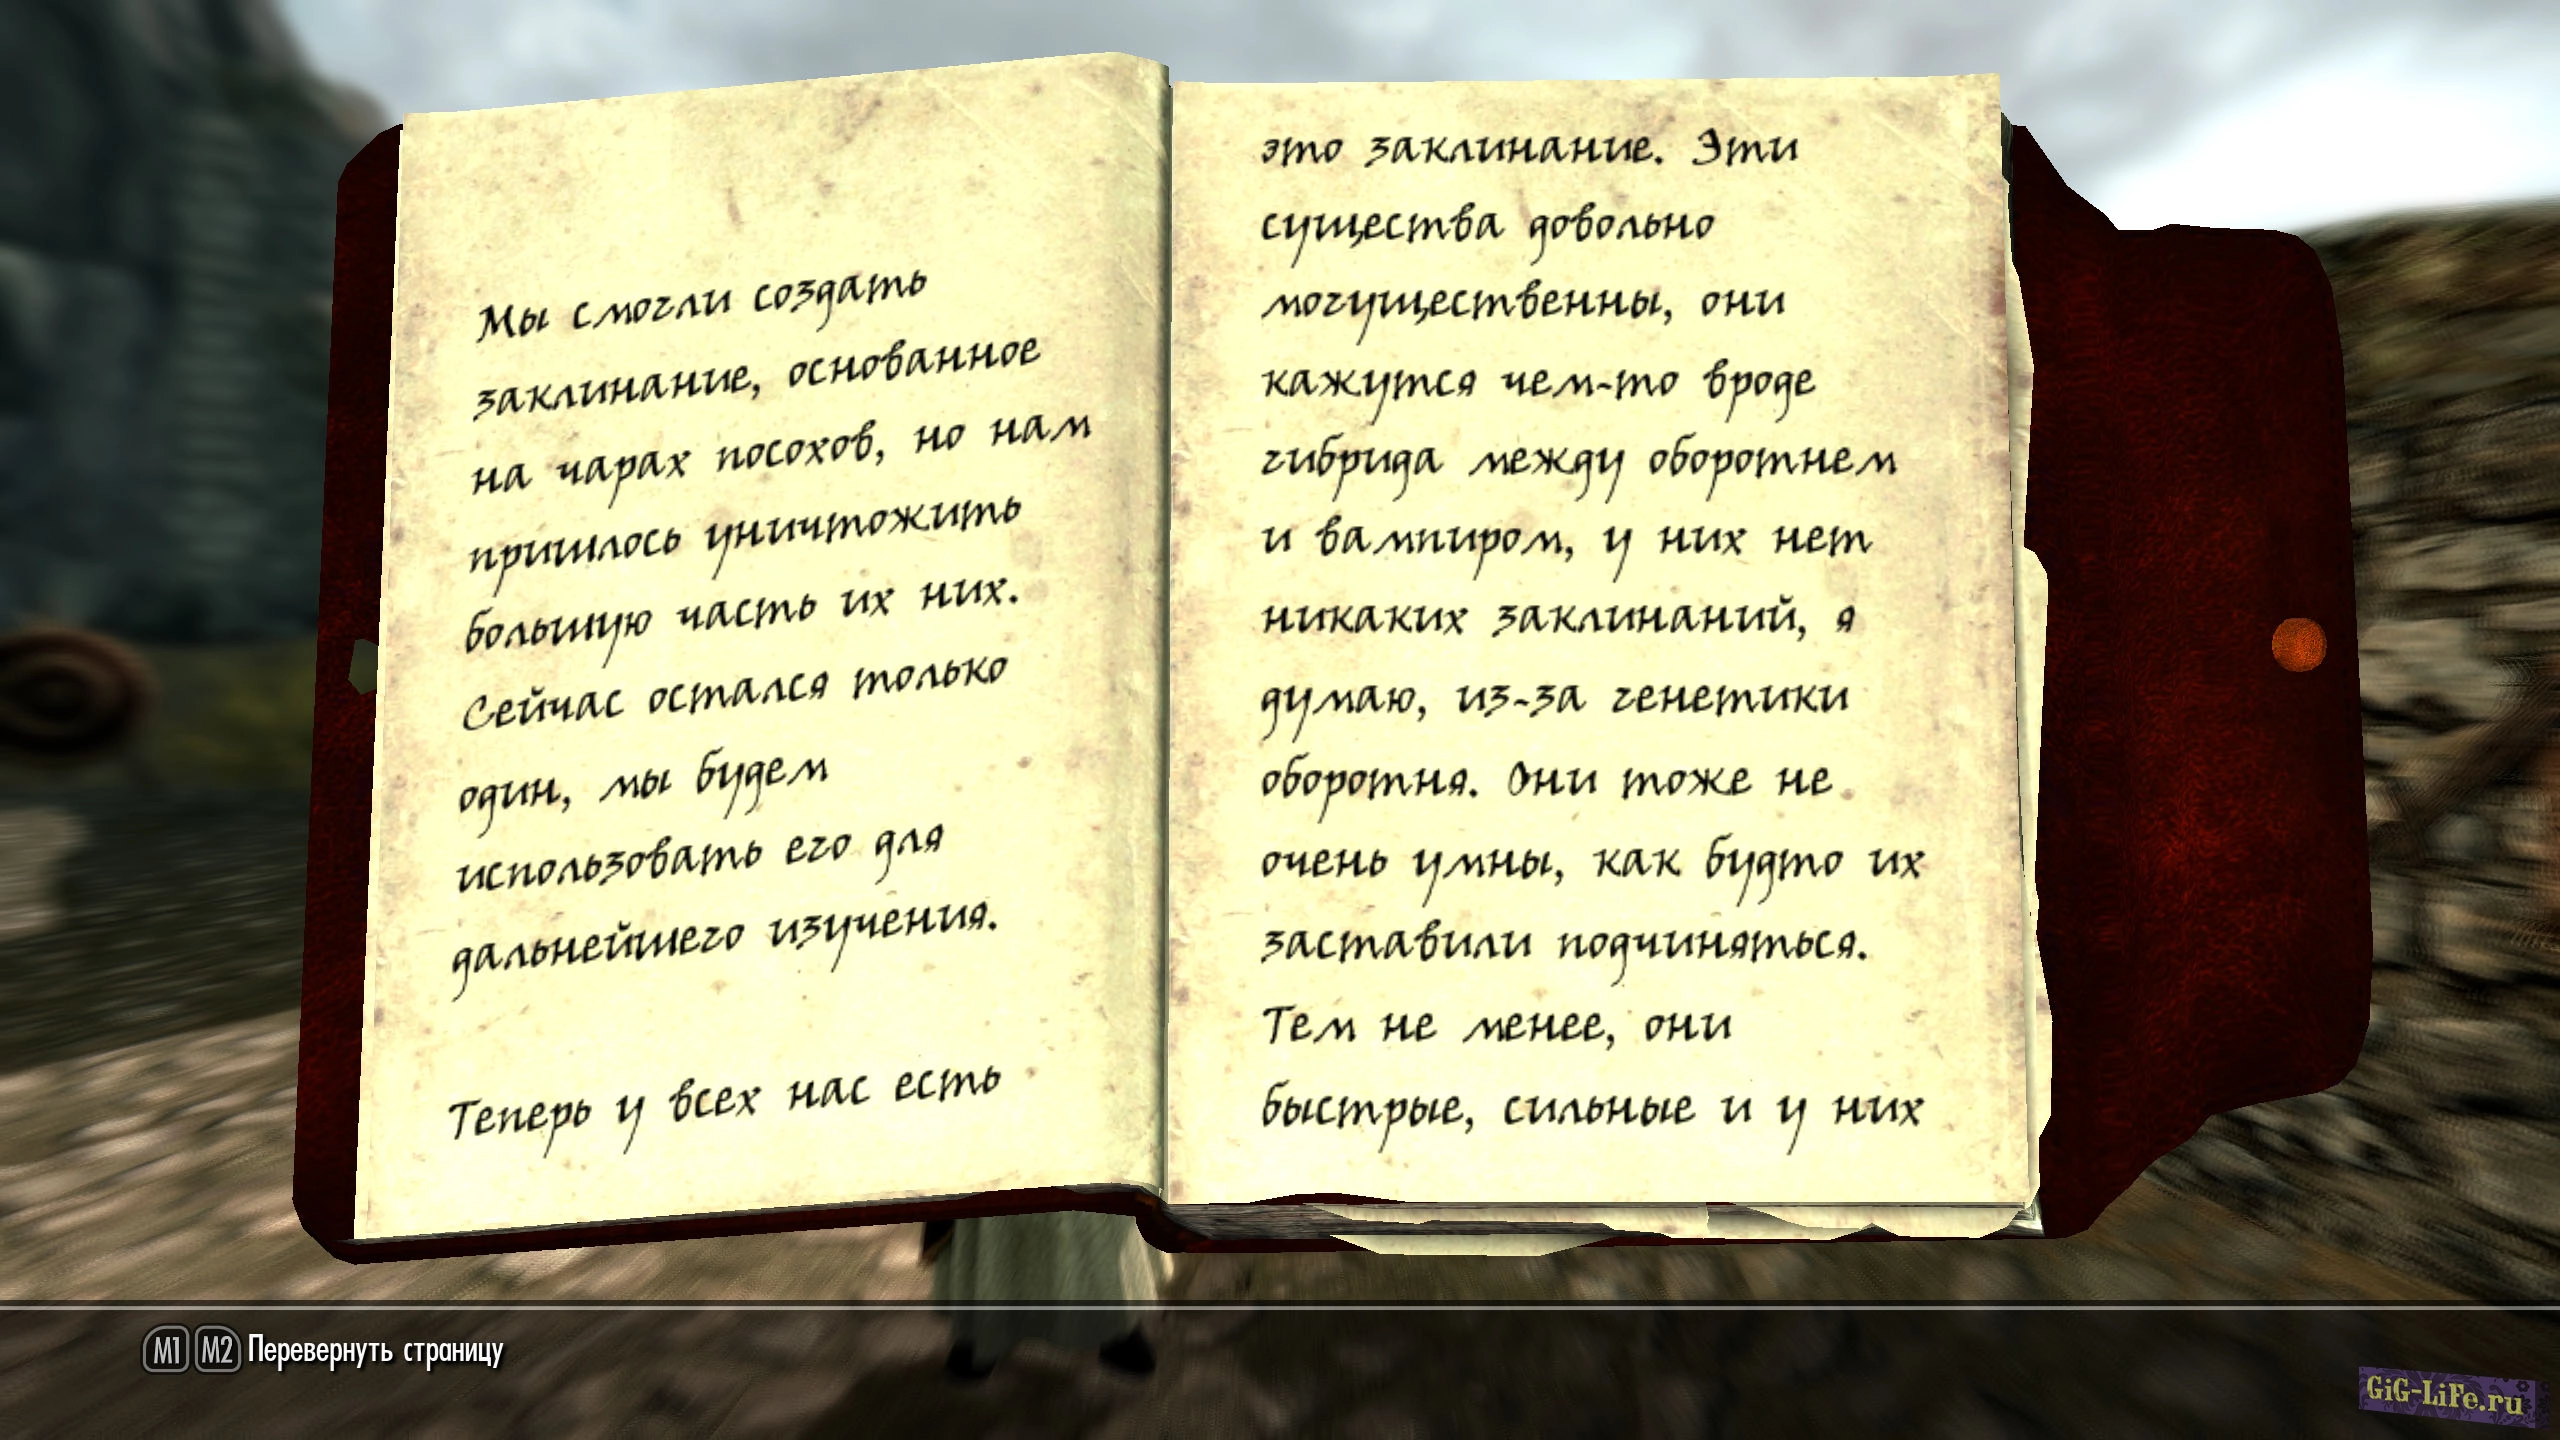 Мы смогли создать
заклинание, основанное
на чарах посохов, но нам
пришлось уничтожить
большую часть их них.
Сейчас остался только
один, мы будем
использовать его для
дальнейшего изучения.
Теперь у всех нас есть
это заклинание. Эти
существа довольно
могущественны, они
кажутся чем-то вроде
гибрида между оборотнем
и вампиром, у них нет
никаких заклинаний, я
думаю, из-за генетики
оборотня. Они тоже не
очень умны, как будто их
заставили подчиняться.
Тем не менее, они
быстрые, сильные и у них
M1 M2 Перевернуть страницу
GiG-LiFe.ru